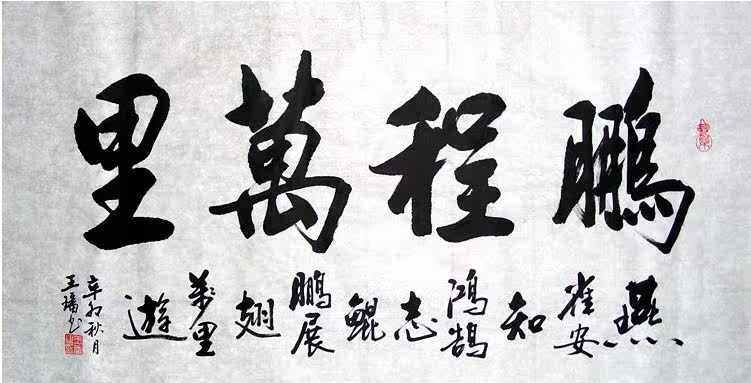 鵬程萬里
燕雀安知鴻鵠志鯤鵬展翅萬里遊
辛卯秋月
王